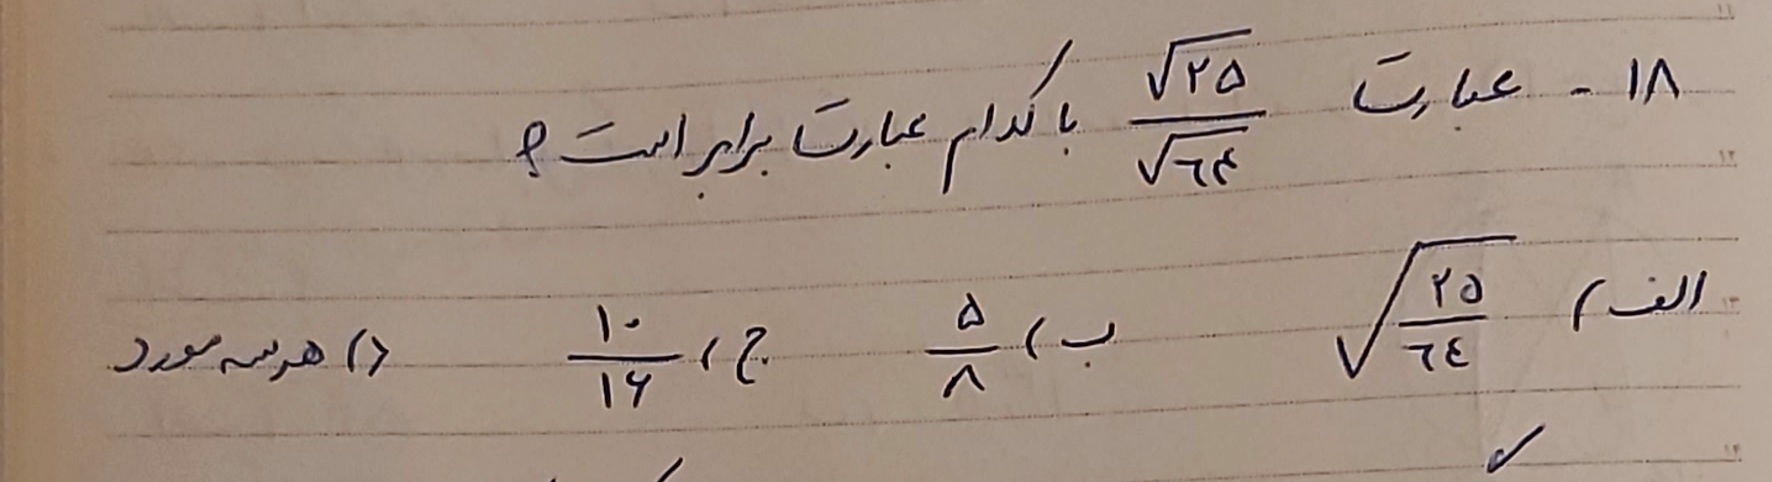 ۱۸ - عبارت √۲۵/√۶۴ با کدام عبارت برابر است؟
الف) √(۲۵/۶۴) ب) ۵/۸ ج) ۱۰/۱۶ د) هر سه مورد